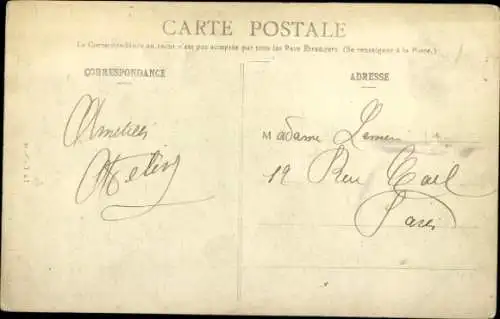 CARTE POSTALE
La Correspondance au recto n'est pas acceptée par tous les Pays Étrangers. (Se renseigner à la Poste.)
CORRESPONDANCE
ADRESSE
Amitiés
Madame
19 Rue
Paris